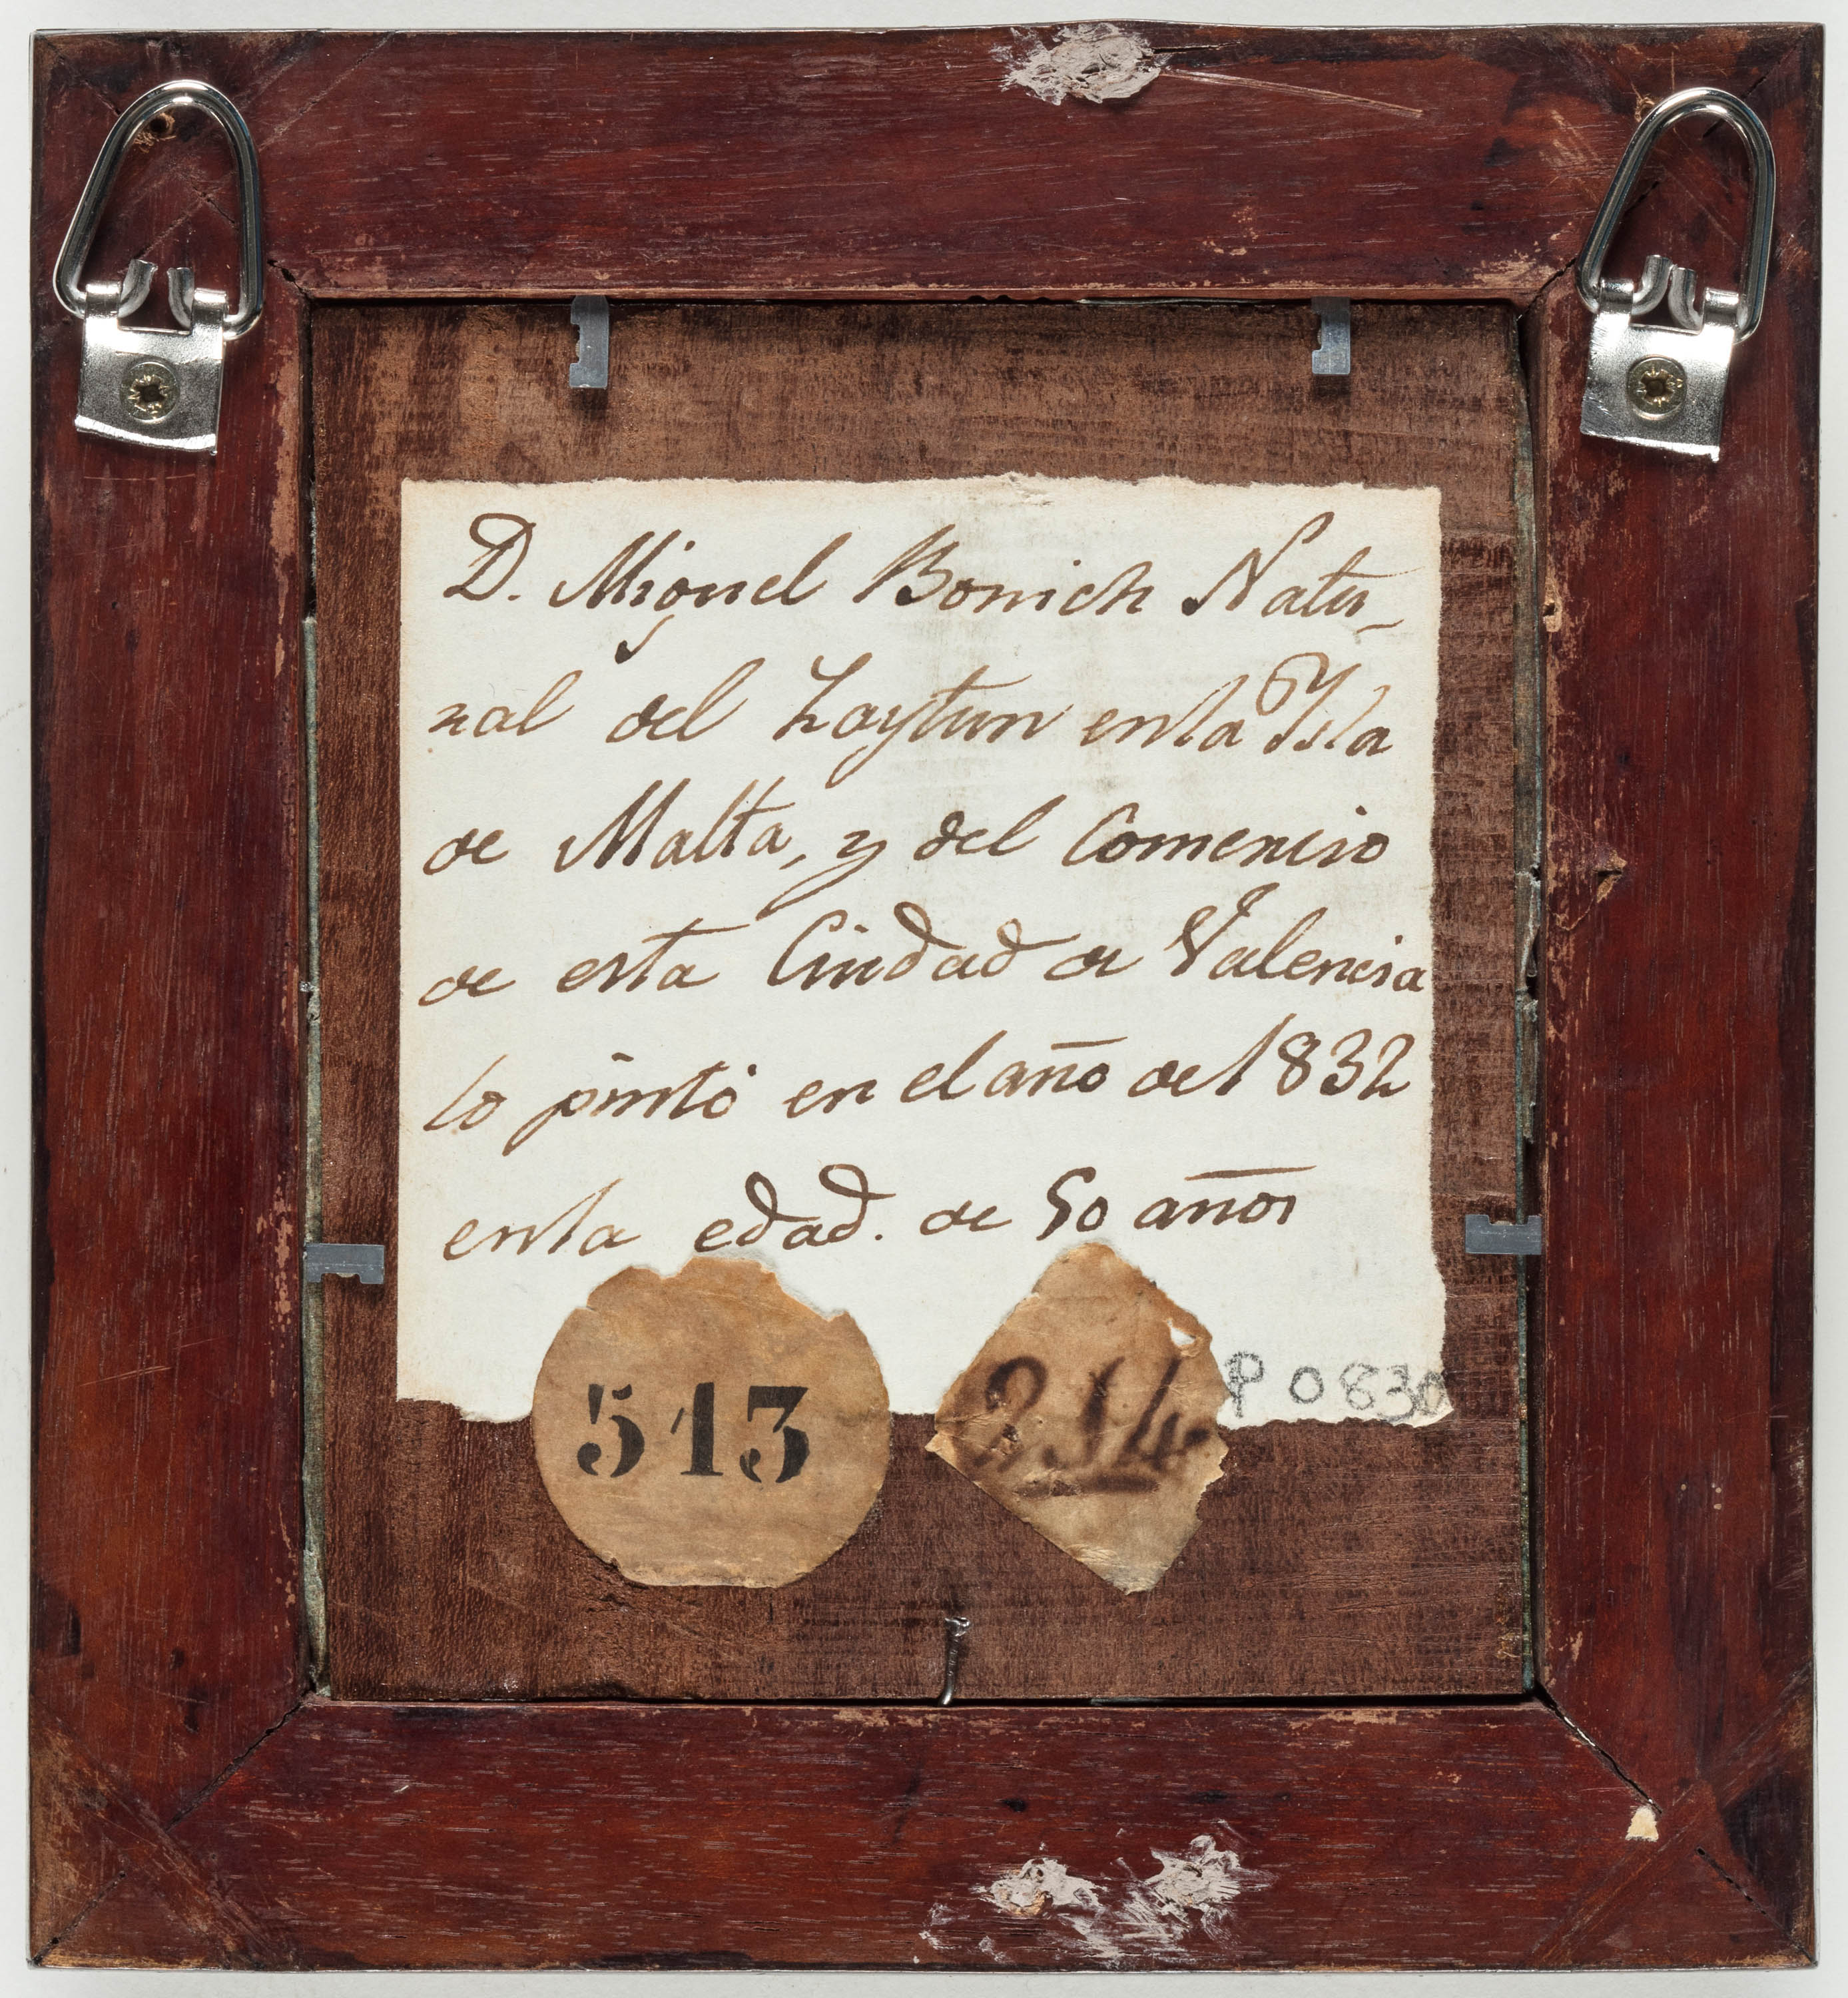 D. Miguel Bonich Natu-
ral del Zaytun en la Ysla
de Malta, y del Comercio
de esta Ciudad de Valencia
lo pintó en el año de 1832
en la edad. de 50 años
513 254
P 0830